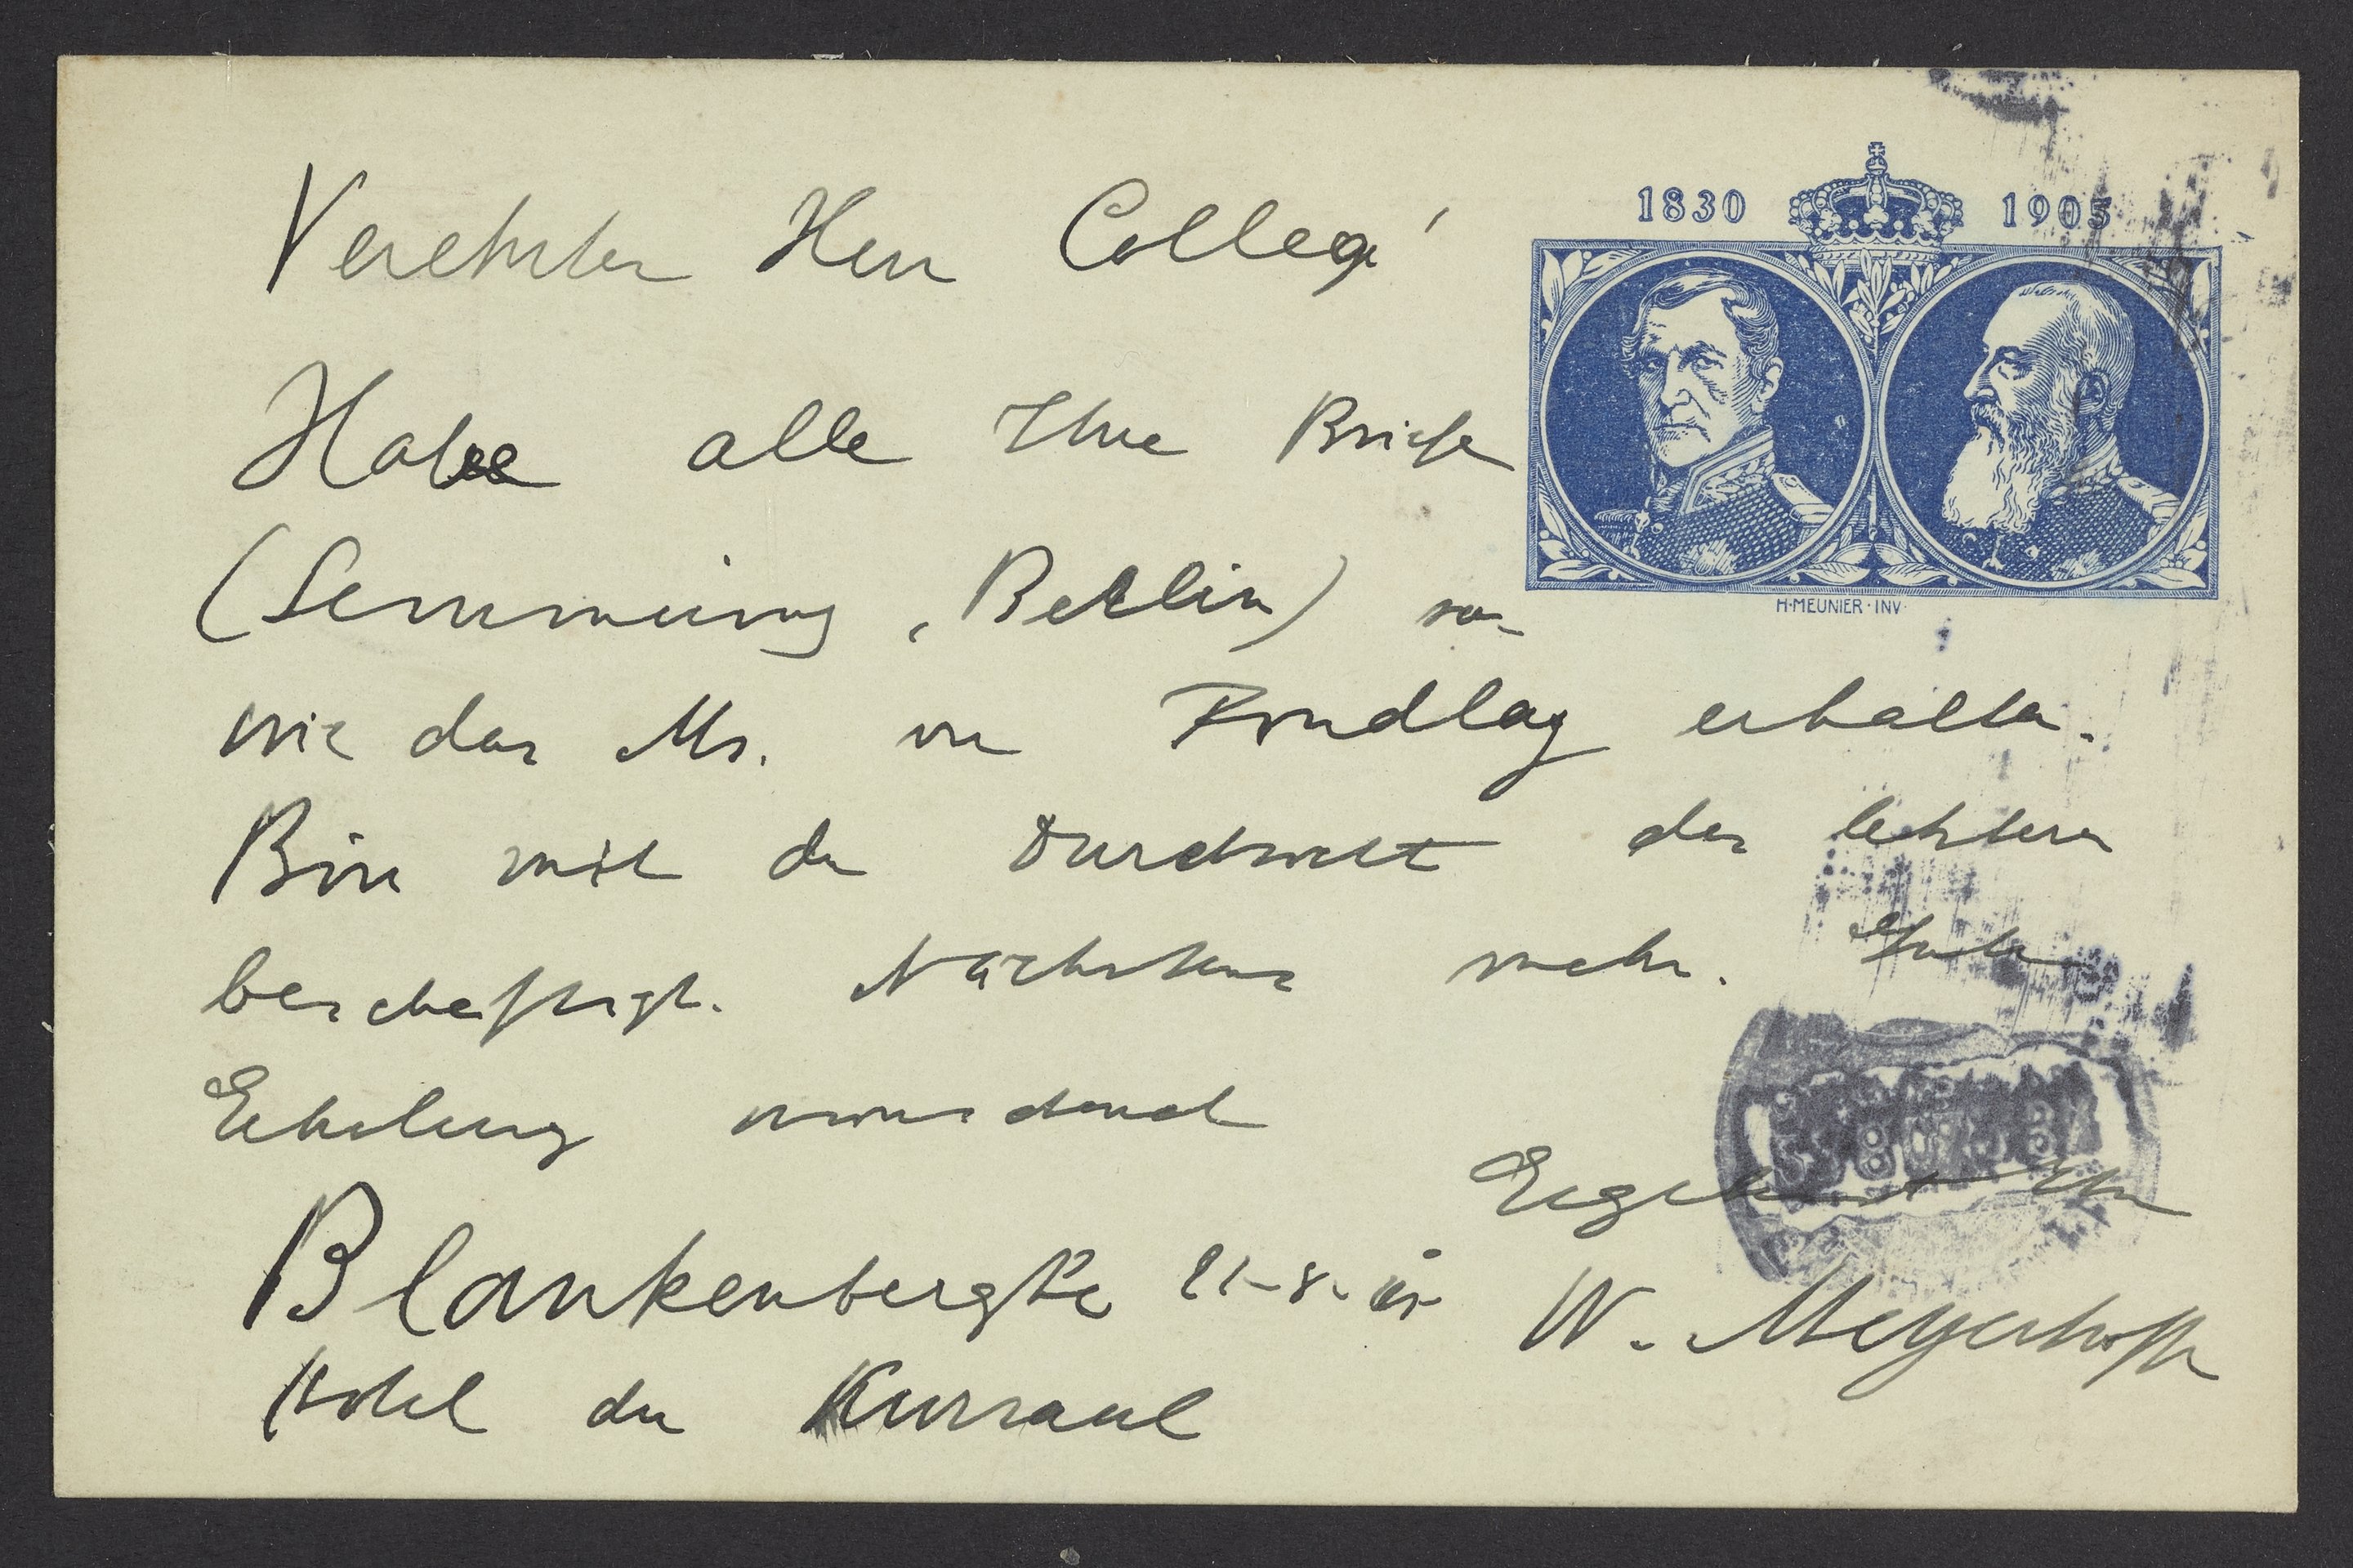 Verehrter Herr College!
1830 1905
Habe alle Ihre Briefe
(Semmering, Berlin) so-
H·MEUNIER·INV·
wie das Ms. von erhalten.
Bin mit der Durchsicht des letzteren
beschäftigt. Nächstens mehr. Gute
Erholung wünschend
Ergebenst Ihr
Blankenberghe 21-8-05
W. Meyerhoffer
Hotel du Kursaal